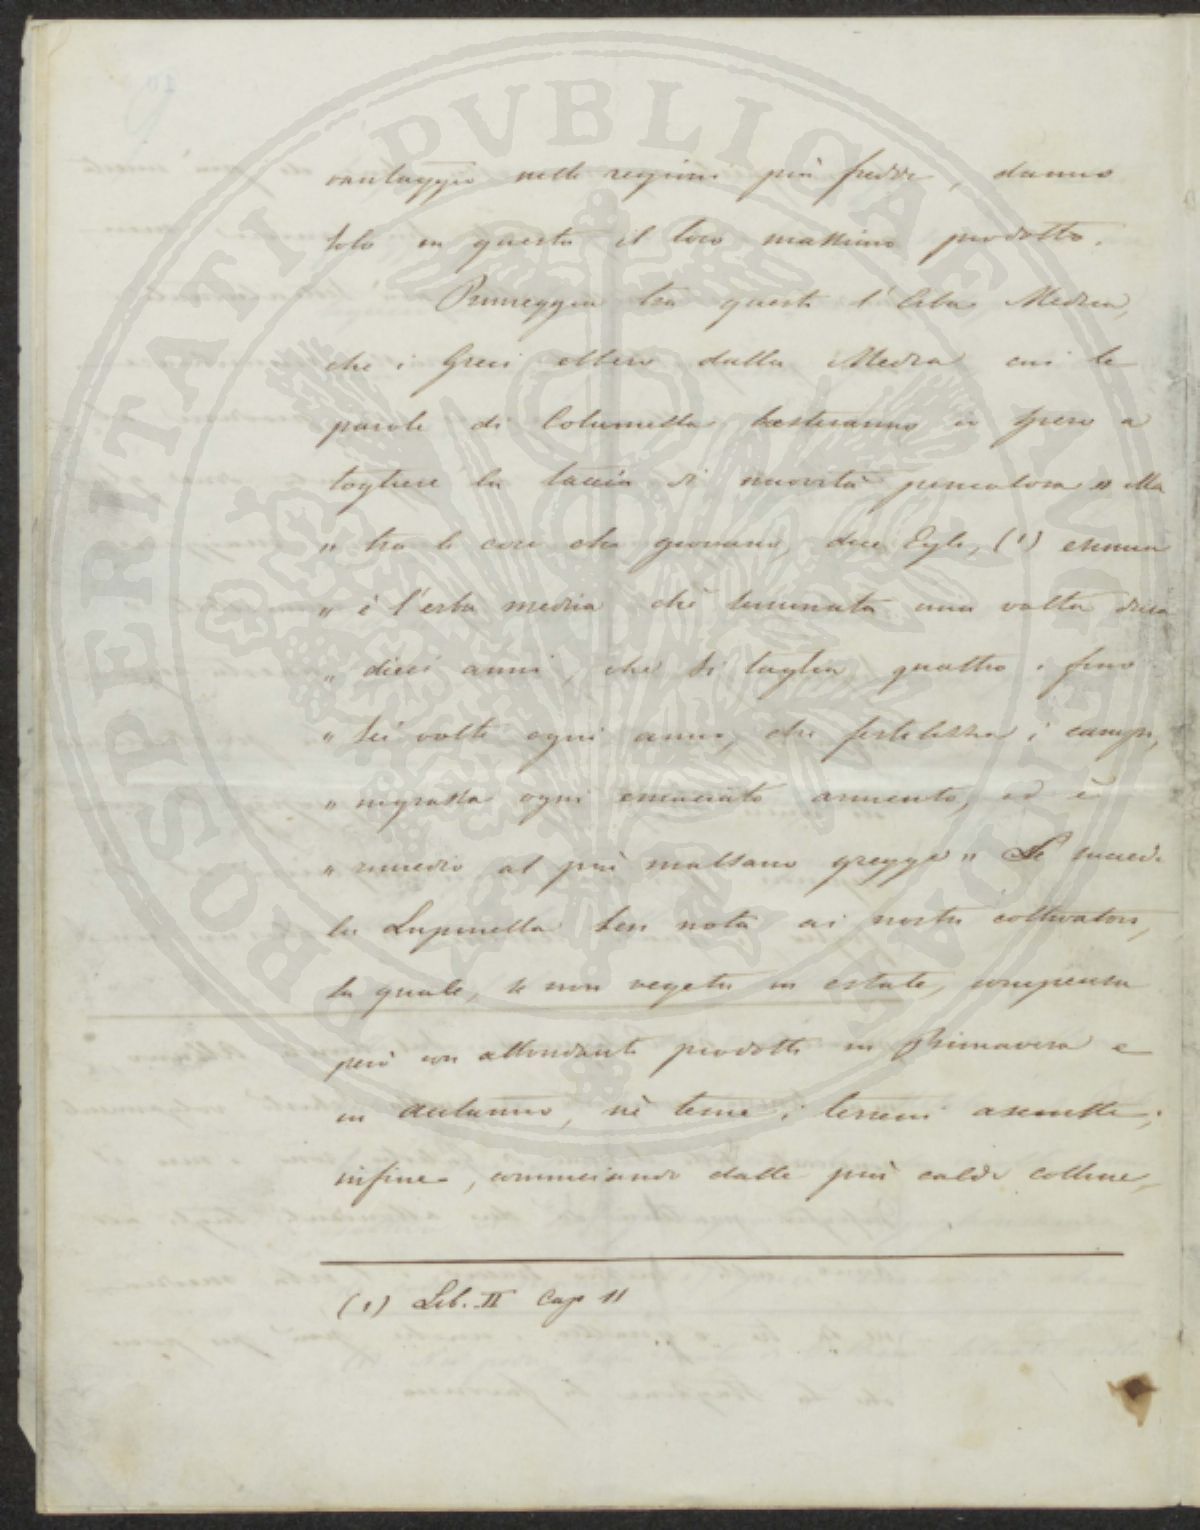 PROSPERITATI PVBLICAE AVGENDAE
vantaggio nelle regioni più fredde, danno
solo in questa il loro massimo prodotto.
Primeggia tra questi l'Erba Medica,
che i Greci ebbero dalla Media cui le
parole di Columella basteranno io spero a
togliere la taccia di novità pericolosa „ Ma
„ tra le cose che giovano, dice Egli, (1) esimia
„ è l'erba medica chè seminata una volta dura
„ dieci anni, che si taglia quattro e fino
„ sei volte ogni anno, che fertilizza i campi,
„ ingrassa ogni emaciato armento, ed è
„ rimedio al più malsano gregge „ Le succede
la Lupinella ben nota ai nostri coltivatori,
la quale, se non vegeta in estate, compensa
però con abbondanti prodotti in Primavera e
in Autunno, nè teme i terreni asciutti;
infine, cominciando dalle più calde colline,
(1) Lib. II Cap 11